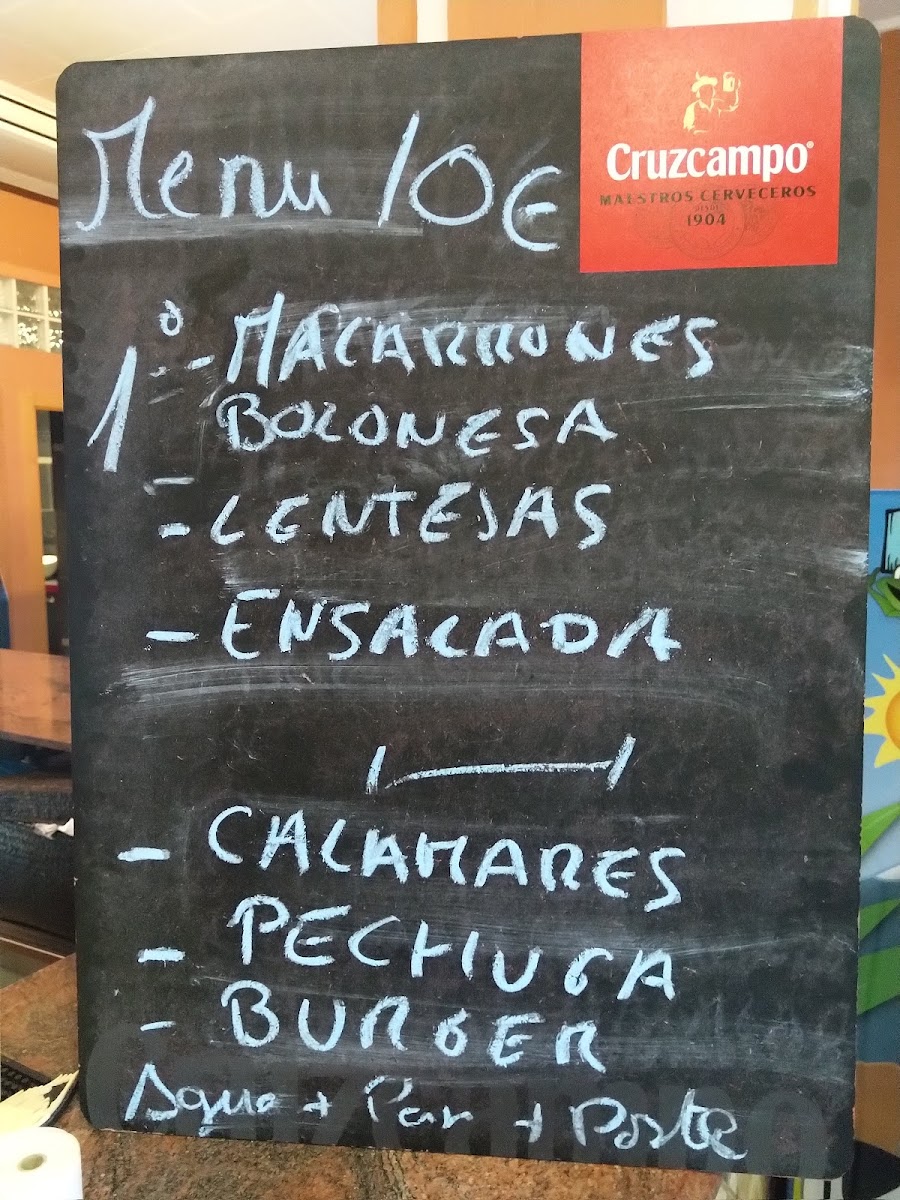 Menu 10€
Cruzcampo®
MAESTROS CERVECEROS
DESDE
1904
1º- MACARRONES
BOLONESA
- LENTEJAS
- ENSALADA
- CALAMARES
- PECHUGA
- BURGER
Agua + Pan + Postre
Cruzcampo